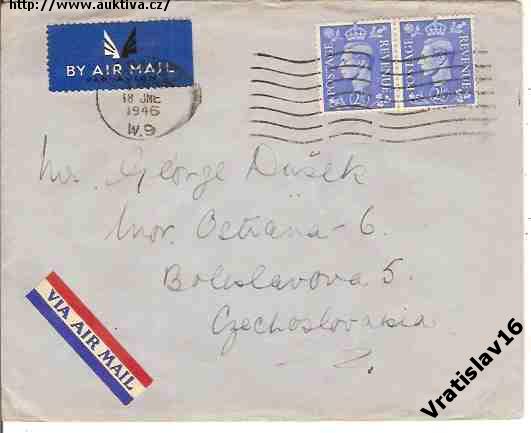 http://www.auktiva.cz/
BY AIR MAIL
18 JNE
1946
W.9
POSTAGE REVENUE
2½
POSTAGE REVENUE
2½
Mr. George Dušek
Mor. Ostrana-6.
Boleslavova 5.
Czechoslovakia
VIA AIR MAIL
Vratislav16